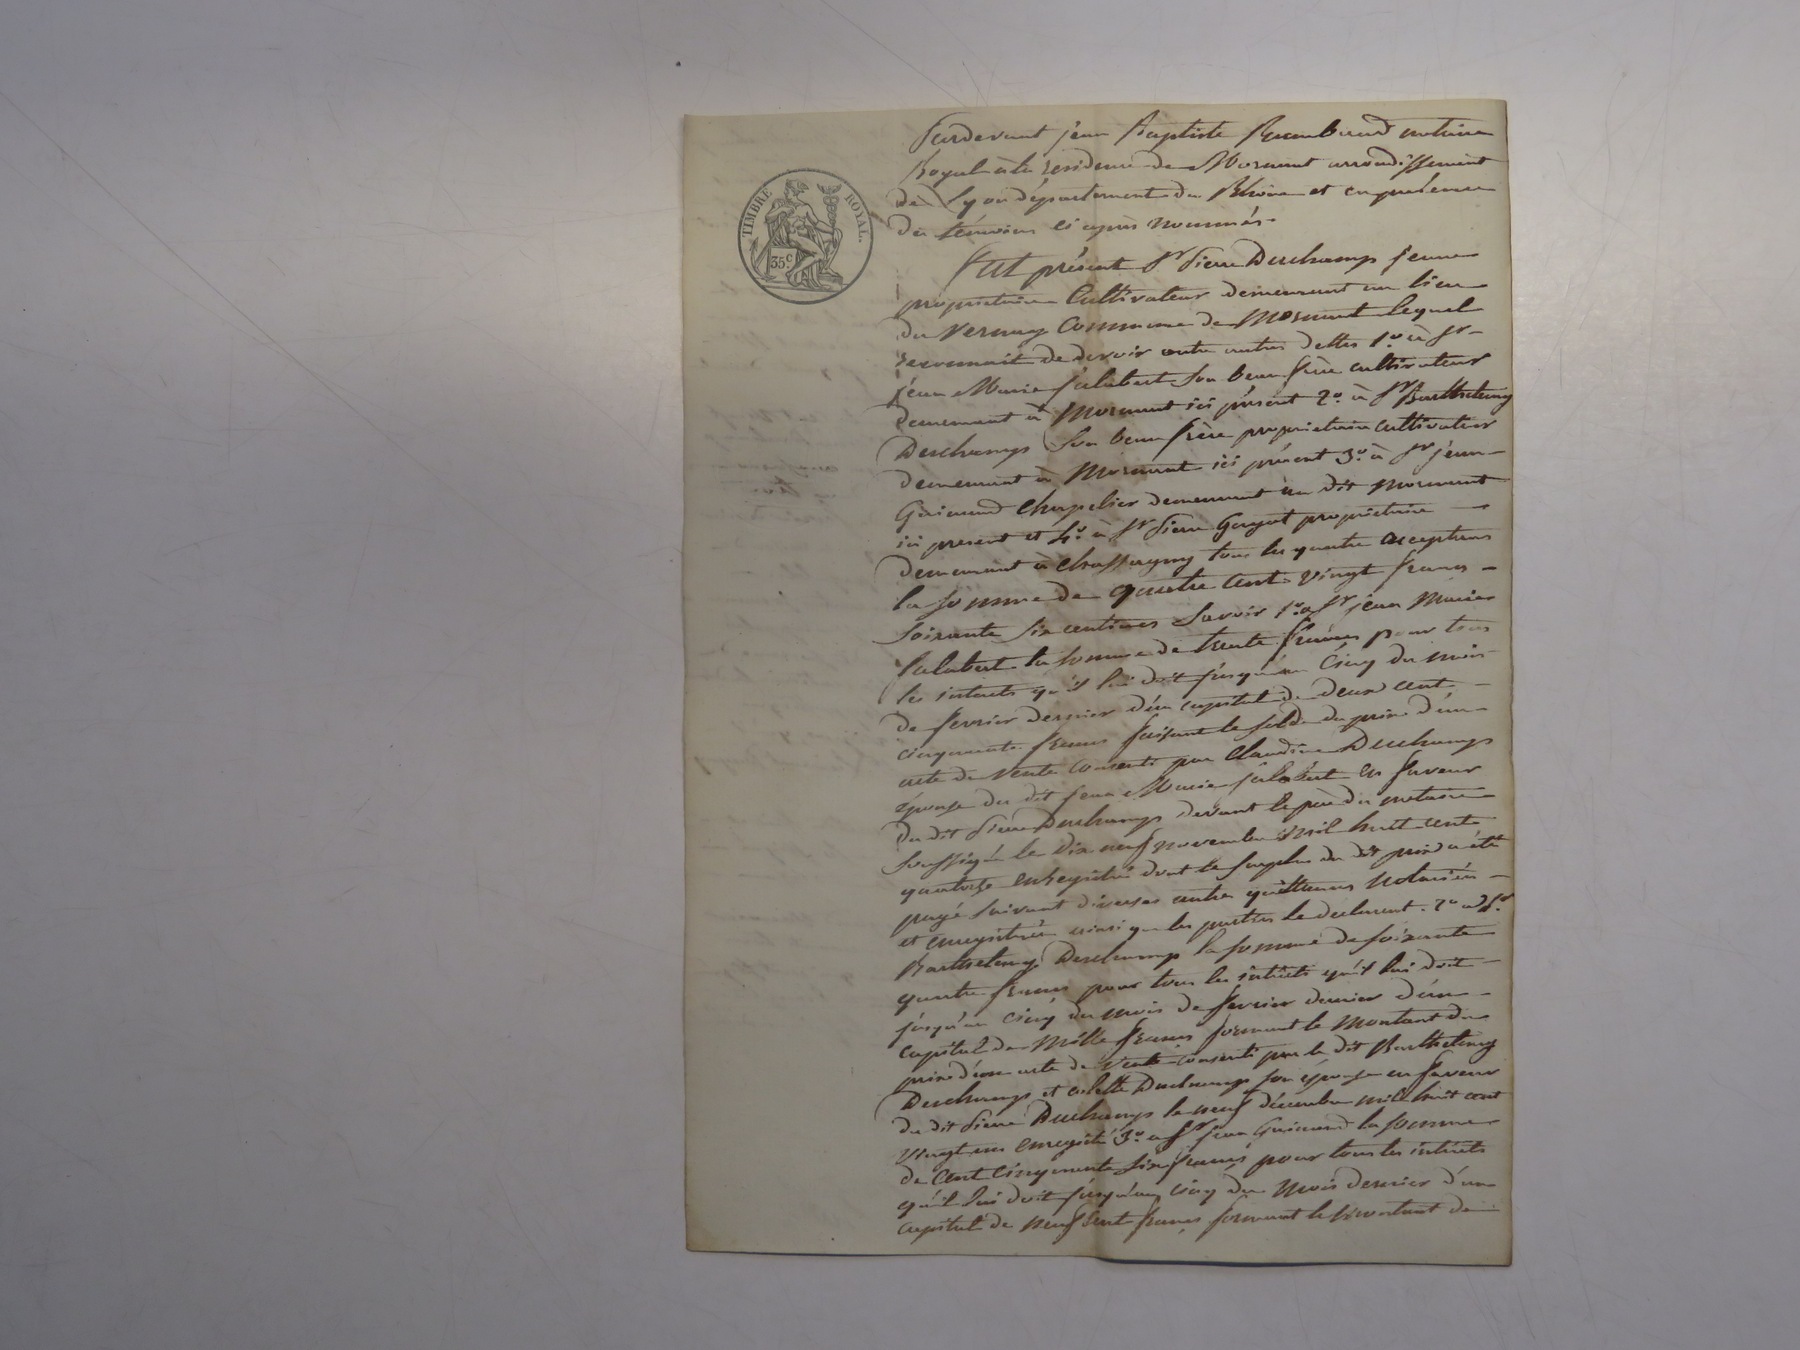 TIMBRE ROYAL.
35c
Pardevant jean Baptiste notaire
Royal à la résidence de Mornant arrondissement
de Lyon département du Rhône et en présence
des témoins ci après nommés
Fut présent Sr Pierre Duchamp jeune
propriétaire Cultivateur demeurant au lieu
du Vernay Commune de Mornant lequel
reconnait de devoir entre autres dettes 1º à Sr
jean Marie jalabert son beau frère cultivateur
demeurant à Mornant ici présent 2º à Sr Barthelemy
Duchamp son beau frère propriétaire cultivateur
demeurant à Mornant ici présent 3º à Sr jean
chapelier demeurant au dit Mornant
ici present et 4º à Sr Pierre Goyat propriétaire
demeurant à Chassagny tous les quatre acceptans
la somme de quatre cent vingt francs
soixante six centimes Savoir 1º à Sr jean Marie
jalabert la somme de trente francs pour tous
les intérêts qu'il lui doit jusqu'au Cinq du mois
de fevrier dernier d'un capital de deux cent
cinquante francs faisant le solde du prix d'un
acte de Vente consenti par Claudine Duchamp
épouse du dit jean Marie jalabert en faveur
du dit Pierre Duchamp devant le père du notaire
soussigné le dix neuf novembre mil huit cent
quatorze enregistré dont le surplus du dit prix a été
payé suivant diverses autres quittances Notariées
et enregistrées ainsi que les parties le déclarent. 2º à Sr
Barthelemy Duchamp la somme de soixante
quatre francs pour tous les intérêts qu'il lui doit
jusqu'au cinq du mois de fevrier dernier d'un
capital de Mille francs formant le Montant du
prix d'un acte de Vente consenti par le dit Barthelemy
Duchamp et Duchamp son épouse en faveur
du dit Pierre Duchamp le neuf décembre mil huit cent
vingt un enregistré 3º à Sr jean la somme
de Cent Cinquante six francs pour tous les intérêts
qu'il lui doit jusqu'au cinq du Mois dernier d'un
capital de neuf cent francs formant le Montant de